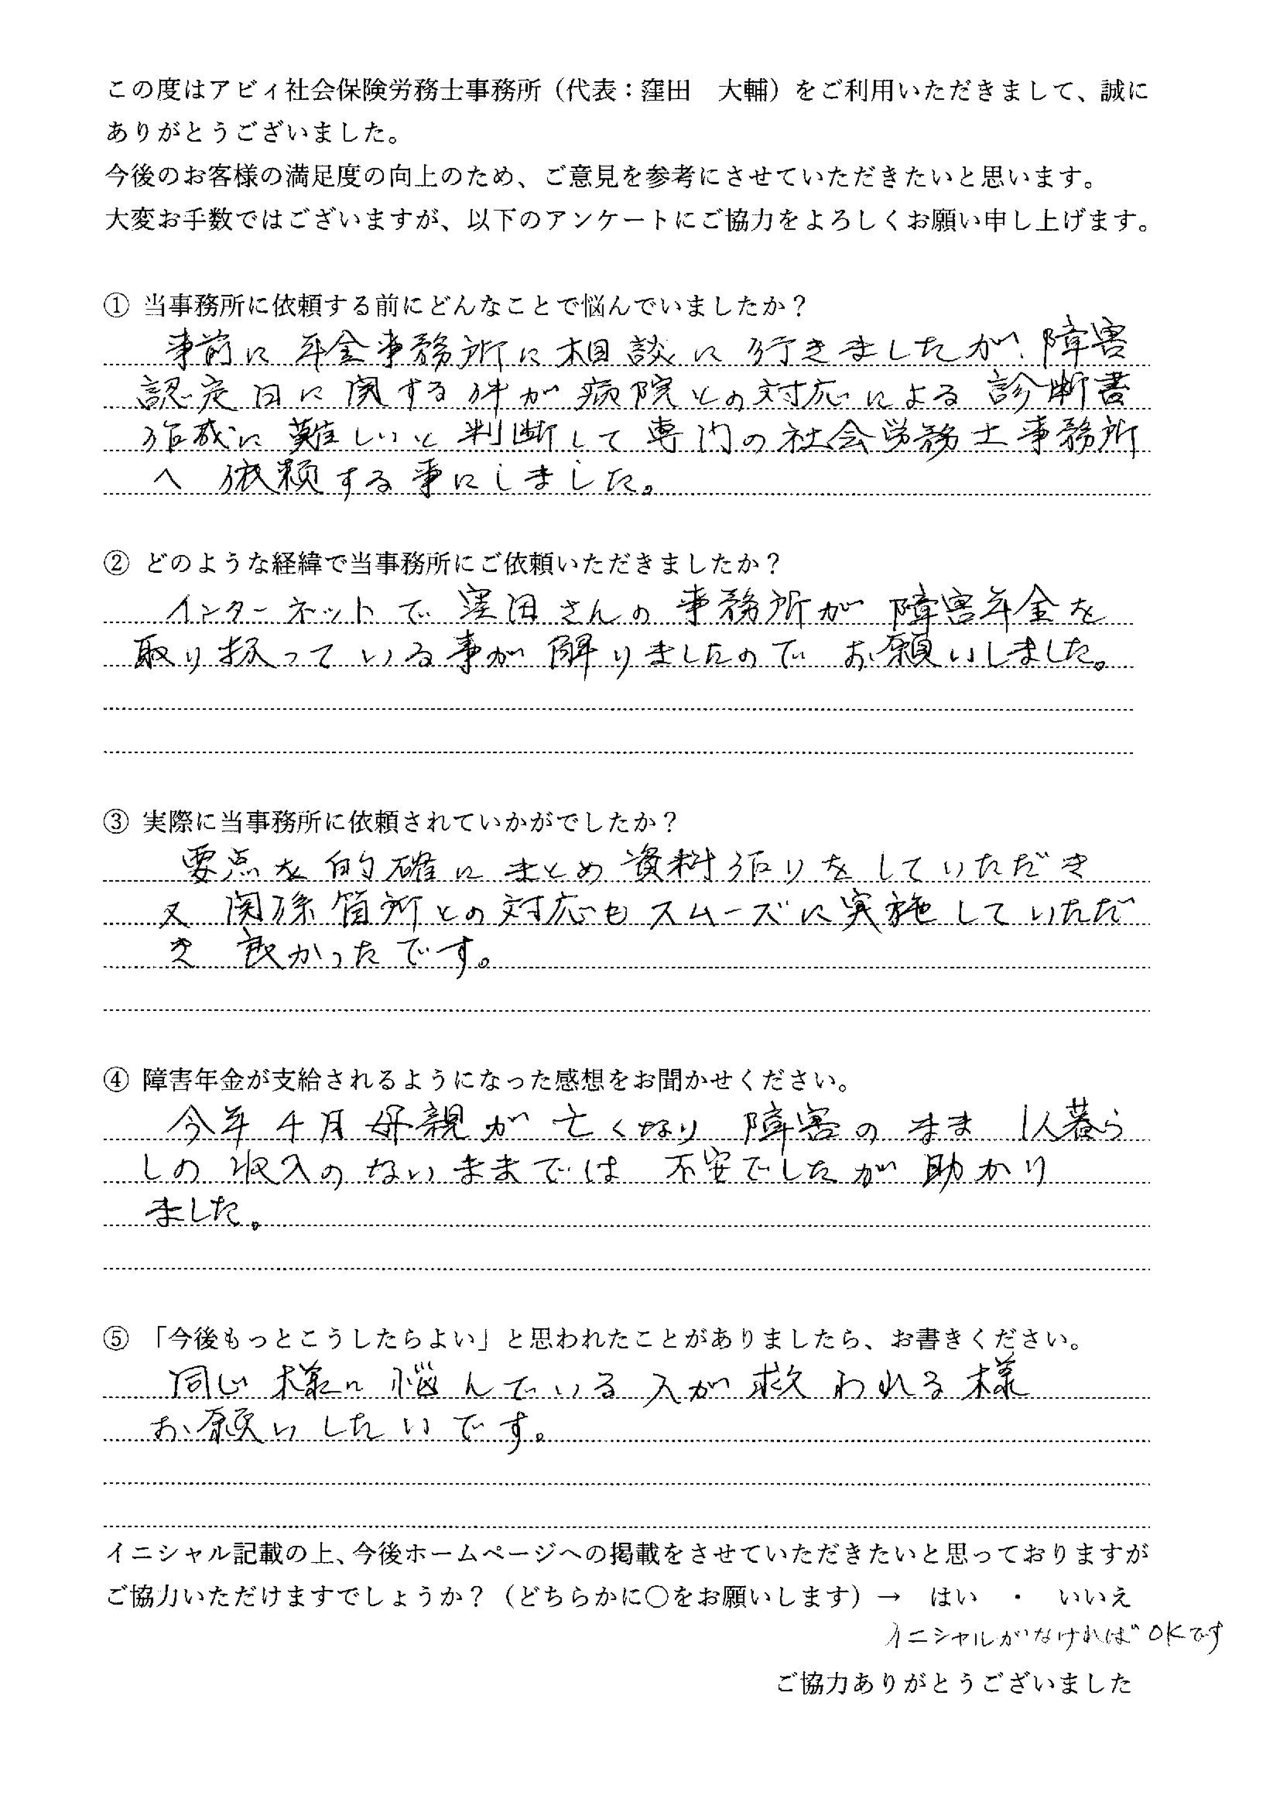 この度はアビィ社会保険労務士事務所（代表：窪田　大輔）をご利用いただきまして、誠に
ありがとうございました。
今後のお客様の満足度の向上のため、ご意見を参考にさせていただきたいと思います。
大変お手数ではございますが、以下のアンケートにご協力をよろしくお願い申し上げます。
① 当事務所に依頼する前にどんなことで悩んでいましたか？
事前に年金事務所に相談に行きましたが、障害
認定日に関する件が病院との対応による診断書
作成に難しいと判断して専門の社会労務士事務所
へ依頼する事にしました。
② どのような経緯で当事務所にご依頼いただきましたか？
インターネットで窪田さんの事務所が障害年金を
取り扱っている事が解りましたのでお願いしました。
③ 実際に当事務所に依頼されていかがでしたか？
要点を的確にまとめ資料作りをしていただき
又 関係箇所との対応もスムーズに実施していただ
き 良かったです。
④ 障害年金が支給されるようになった感想をお聞かせください。
今年4月母親が亡くなり 障害のまま 1人暮ら
しの収入のないままでは 不安でしたが助かり
ました。
⑤ 「今後もっとこうしたらよい」と思われたことがありましたら、お書きください。
同じ様に悩んでいる人が救われる様
お願いしたいです。
イニシャル記載の上、今後ホームページへの掲載をさせていただきたいと思っておりますが
ご協力いただけますでしょうか？（どちらかに〇をお願いします）→　はい　・　いいえ
イニシャルがなければOKです
ご協力ありがとうございました